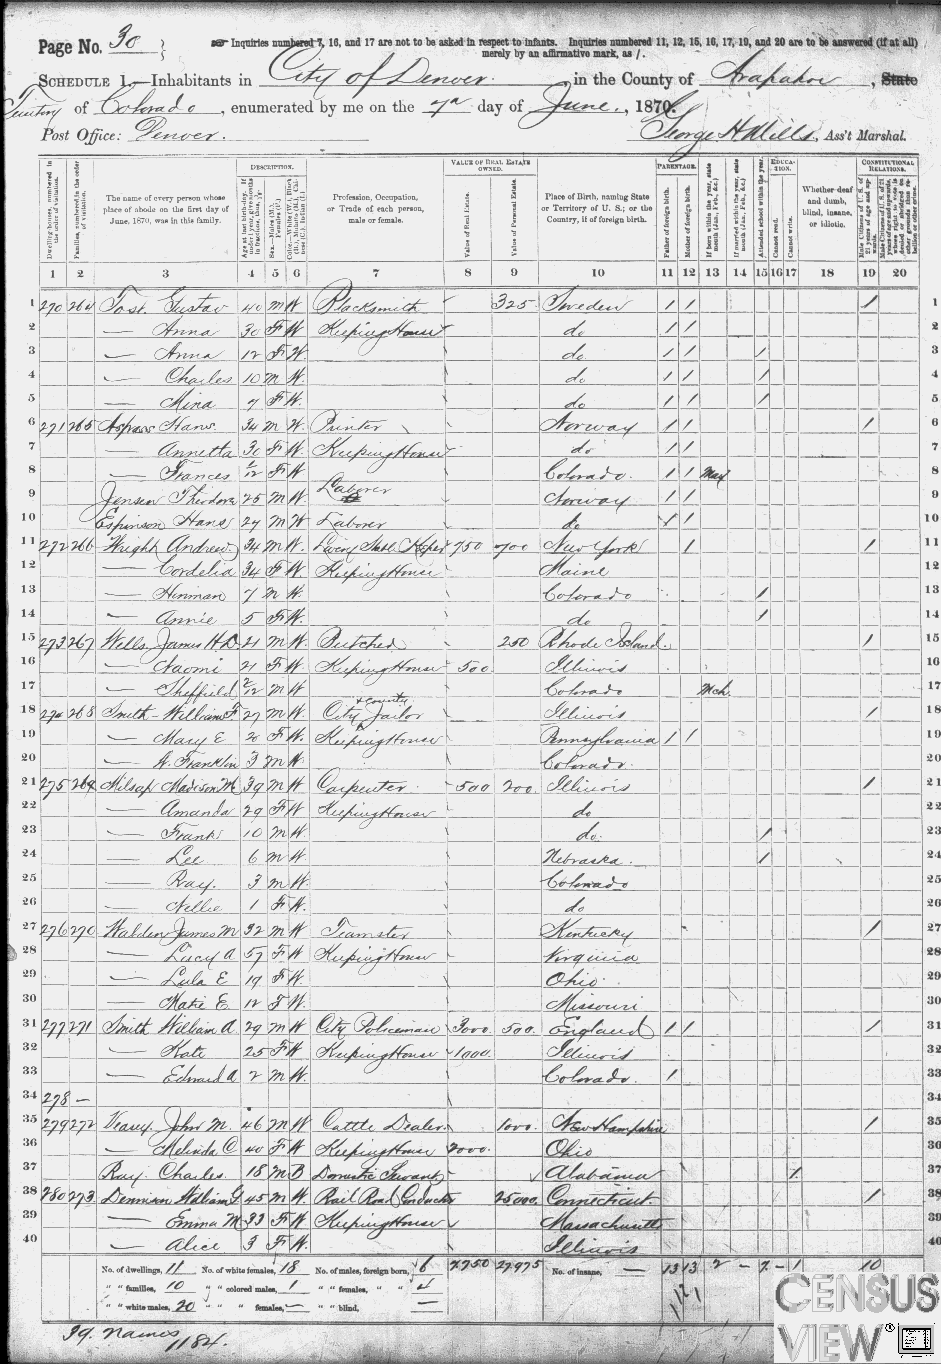 Page No. 30
☞ Inquiries numbered 7, 16, and 17 are not to be asked in respect to infants. Inquiries numbered 11, 12, 15, 16, 17, 19, and 20 are to be answered (if at all)
merely by an affirmative mark, as /.
SCHEDULE 1.—Inhabitants in City of Denver. in the County of Arapahoe, State
Territory of Colorado, enumerated by me on the 7th day of June, 1870.
Post Office: Denver. George H Mills, Ass't Marshal.
DESCRIPTION. VALUE OF REAL ESTATE OWNED. PARENTAGE. EDUCATION. CONSTITUTIONAL RELATIONS.
Dwelling-houses, numbered in the order of visitation.
Families, numbered in the order of visitation.
The name of every person whose place of abode on the first day of June, 1870, was in this family.
Sex.—Males (M.), Females (F.)
Profession, Occupation, or Trade of each person, male or female.
Value of Real Estate.
Value of Personal Estate.
Place of Birth, naming State or Territory of U. S.; or the Country, if of foreign birth.
Father of foreign birth.
Mother of foreign birth.
If born within the year, state month (Jan., Feb., &c.)
If married within the year, state month (Jan., Feb., &c.)
Attended school within the year.
Cannot read.
Cannot write.
Whether deaf and dumb, blind, insane, or idiotic.
1 2 3 4 5 6 7 8 9 10 11 12 13 14 15 16 17 18 19 20
1 270 264 Gustav 40 M W Blacksmith 325 Sweden / / / 1
2 — Anna 30 F W Keeping House do / / 2
3 — Anna 12 F W do / / / 3
4 — Charles 10 M W. do / / / 4
5 — Mina 7 F W. do / / / 5
6 271 265 Hans 34 M W Printer Norway / / / 6
7 — Annetta 30 F W. Keeping House do / / 7
8 — Frances 2/12 F W Colorado / / May 8
9 Jensen Theodore 25 M W Laborer Norway / / 9
10 Espinson Hans 27 M W Laborer do / / 10
11 272 266 Wright Andrew 34 M W. Livery Stable Keeper 750 700 New York / / 11
12 — Cordelia 34 F W. Keeping House Maine 12
13 — Hinman 7 M W. Colorado / 13
14 — Annie 5 F W. do / 14
15 273 267 Wells, James H D. 21 M W. 250 Rhode Island. / 15
16 — Naomi 21 F W. Keeping House 500 Illinois 16
17 — Sheffield 2/12 M W Colorado Mch. 17
18 274 268 Smith William F 27 M W. City & County Jailor Illinois / 18
19 — Mary E 20 F W. Keeping House Pennsylvania / / 19
20 — W. Franklin 3 M W. Colorado. 20
21 275 269 Milsap Madison M 39 M W. Carpenter 500 200. Illinois / 21
22 — Amanda 29 F W. Keeping House do 22
23 — Frank 10 M W. do. / 23
24 — Lee 6 M W Nebraska. / 24
25 — Ray. 3 M W. Colorado 25
26 — Nellie 1 F W. do 26
27 276 270 Walden James M 32 M W Teamster Kentucky / 27
28 — Lucy A 57 F W. Keeping House Virginia 28
29 — Lula E 19 F W. Ohio 29
30 — Matie E 12 F W. Missouri 30
31 277 271 Smith William A 29 M W. City Policeman 3000. 500. England / / / 31
32 — Kate 25 F W Keeping House 1000. Illinois 32
33 — Edward A 2 M W. Colorado. / 33
34 278 — 34
35 279 272 Veasey John M. 46 M W Cattle Dealer 1000. New Hampshire / 35
36 — Melinda C 40 F W Keeping House 2000. Ohio 36
37 Ray Charles. 18 M B Domestic Servant Alabama / 37
38 280 273 Dennison William G 45 M W. Rail Road Conductor 25000. Connecticut / 38
39 — Emma M 33 F W. Keeping House Massachusetts 39
40 — Alice 3 F W. Illinois 40
No. of dwellings, 11 No. of white females, 18 No. of males, foreign born, 6 7750 27975 No. of insane, — 13 13 2 — 7 — 1 10
" " families, 10 " " colored males, 1 " " females, " " 4
" " white males, 20 " " " females, — " " blind, —
39. names
1184.
CENSUS
VIEW®